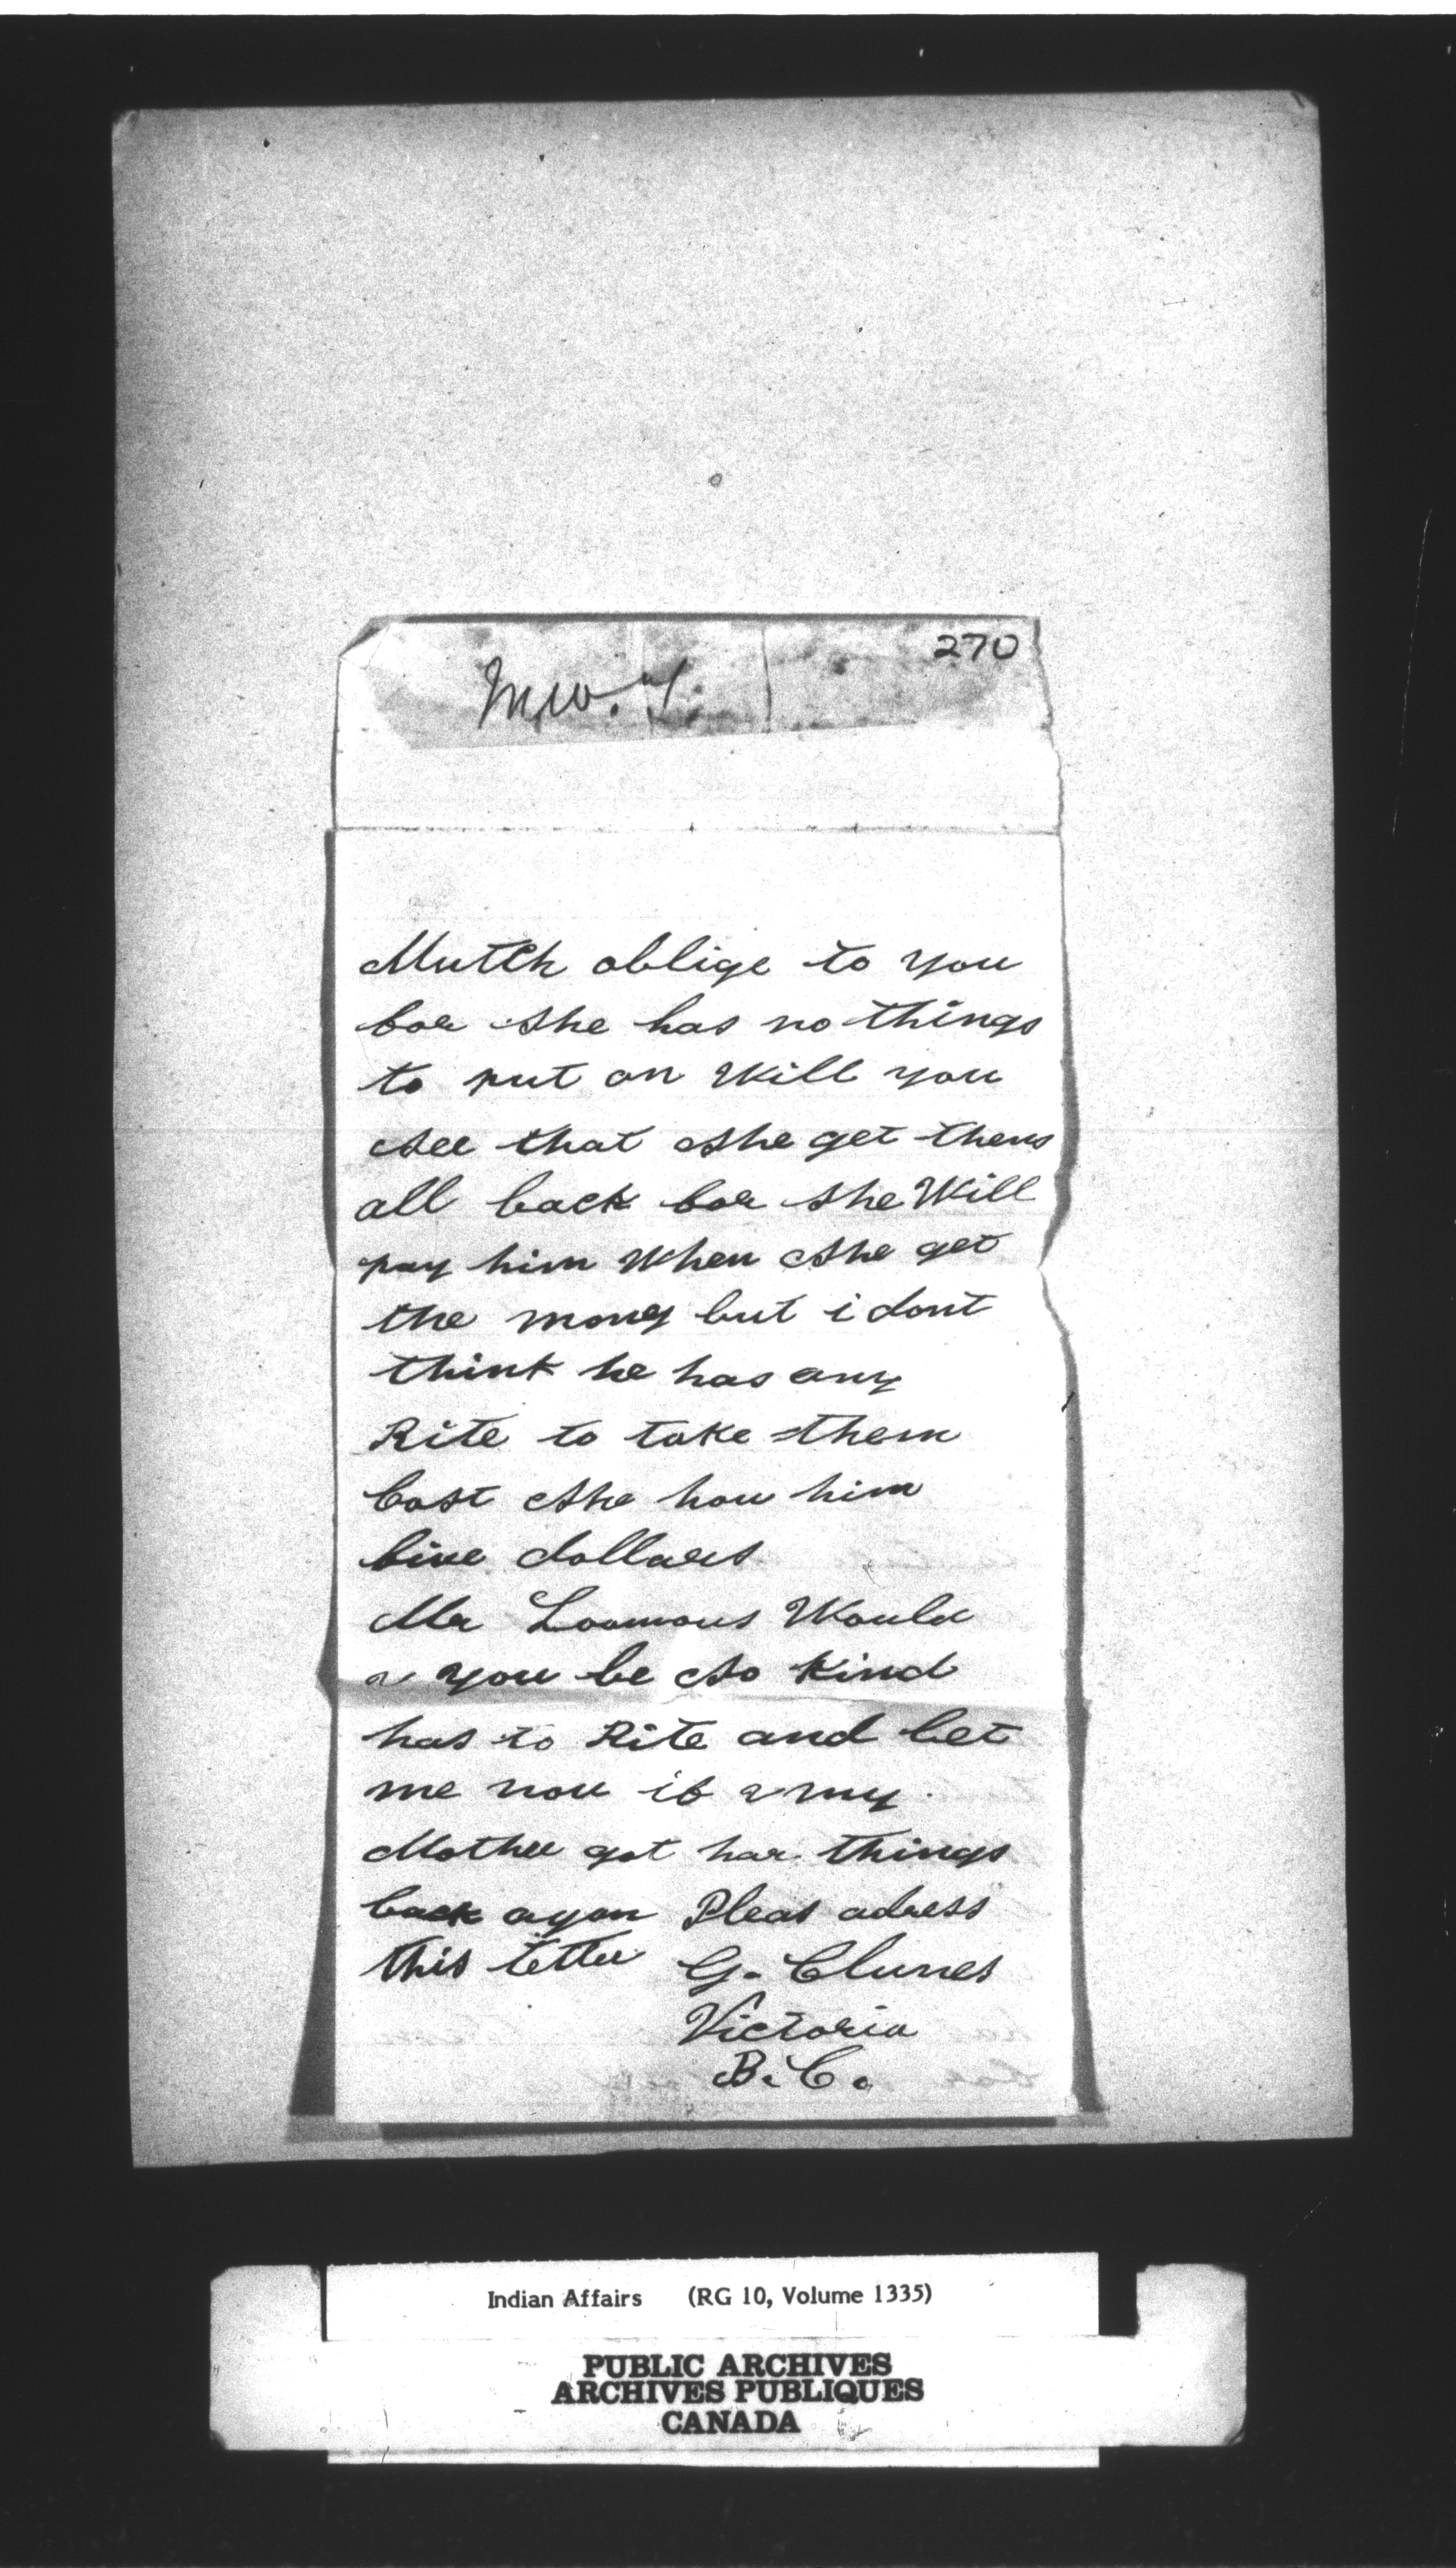 270
Mutch oblige to you
for she has no things
to put on Will you
see that she get them
all back for she Will
pay him When she get
the mony but i dont
think he has any
Rite to take them
Cost she hou him
five dollars
Mr Loomous Would
you be so Kind
has to Rite and let
me nou if my
Mother got har things
back agan Pleas adress
this letter G. Clunes
Victoria
B.C.
Indian Affairs (RG 10, Volume 1335)
PUBLIC ARCHIVES
ARCHIVES PUBLIQUES
CANADA